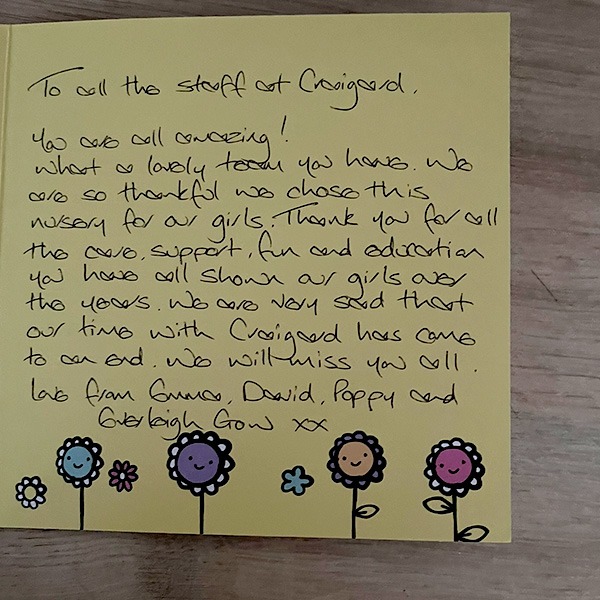 To all the staff at Craigard.
You are all amazing!
What a lovely team you have. We
are so thankful we chose this
nursery for our girls. Thank you for all
the care, support, fun and education
you have all shown our girls over
the years. We are very sad that
our time with Craigard has come
to an end. We will miss you all.
Love from Emma, David, Poppy and
Everleigh Gow xx